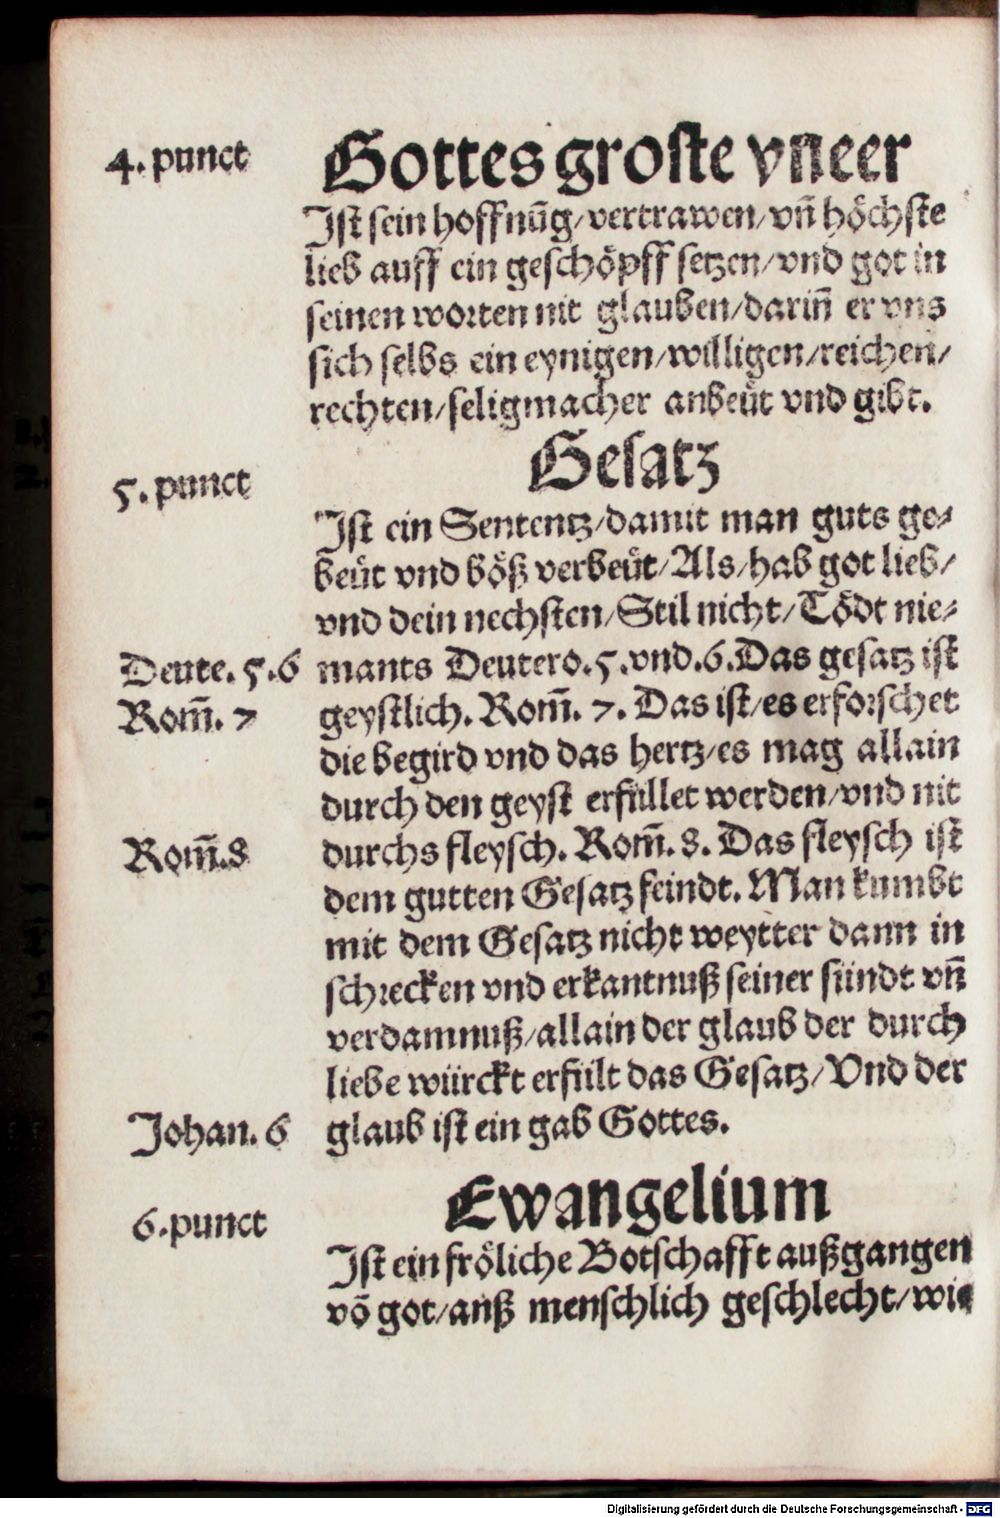 4. punct
Gottes groste vneer
Ist sein hoffnūg/vertrawen/vn̄ höchste
lieb auff ein geschöpff setzen/vnd got in
seinen worten nit glauben/darin̄ er vns
sich selbs ein eynigen/willigen/reichen/
rechten/seligmacher anbeüt vnd gibt.
5. punct
Gesatz
Ist ein Sententz/damit man guts ge⸗
beüt vnd böß verbeüt/Als/hab got lieb/
vnd dein nechsten/Stil nicht/Tödt nie⸗
Deute. 5.6
mants Deutero.5.vnd.6.Das gesatz ist
Rom̄. 7
geystlich. Rom̄. 7. Das ist/es erforschet
die begird vnd das hertz/es mag allain
durch den geyst erfüllet werden/vnd nit
Rom̄.8
durchs fleysch. Rom̄. 8. Das fleysch ist
dem gutten Gesatz feindt. Man kumbt
mit dem Gesatz nicht weytter dann in
schrecken vnd erkantnuß seiner sündt vn̄
verdamnuß/allain der glaub der durch
liebe würckt erfült das Gesatz/Vnd der
Johan. 6
glaub ist ein gab Gottes.
6.punct
Ewangelium
Ist ein fröliche Botschafft außgangen
vō got/anß menschlich geschlecht/wie
Digitalisierung gefördert durch die Deutsche Forschungsgemeinschaft - DFG